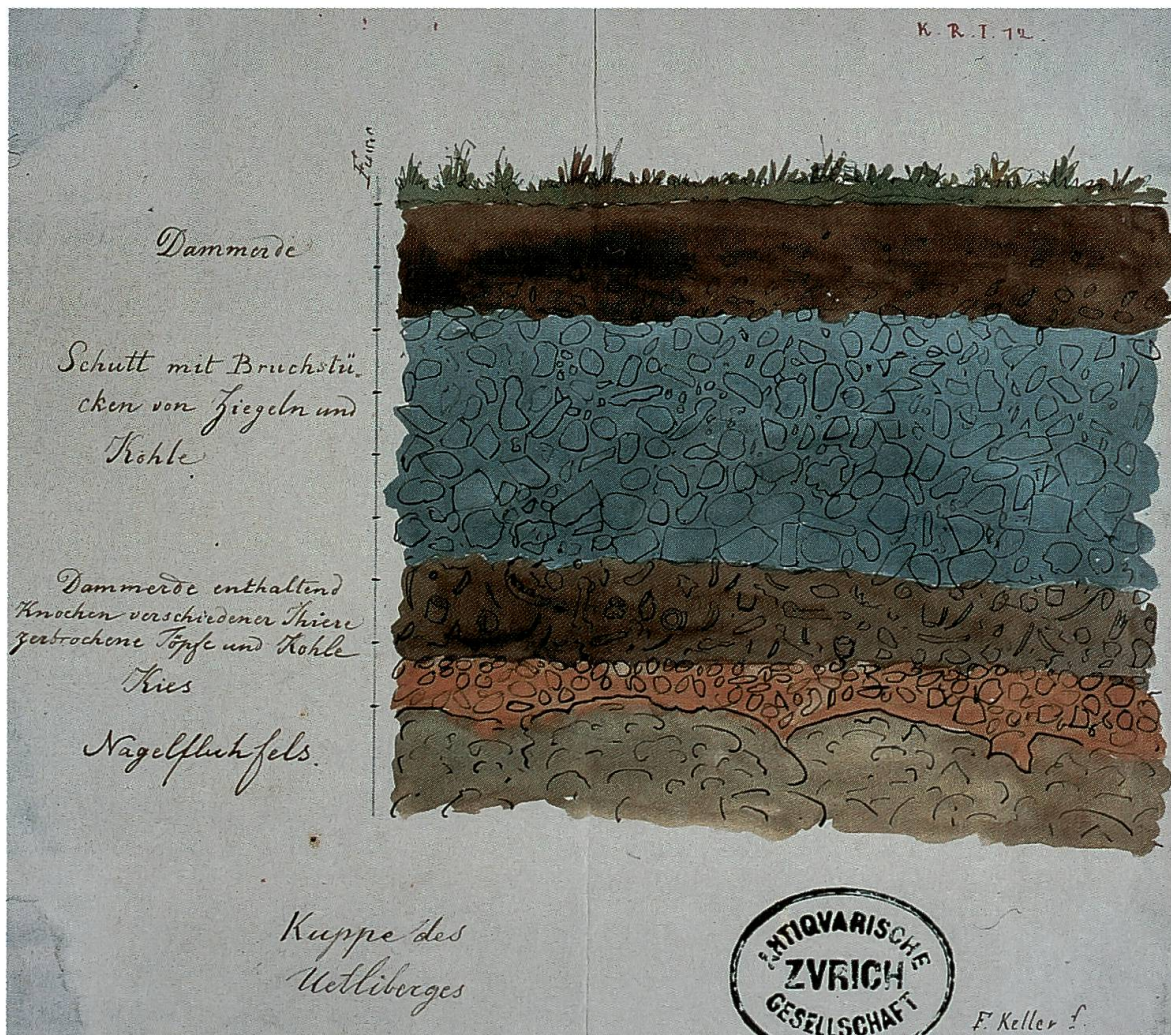 K. R. I. 72.
Fuss
Dammerde
Schutt mit Bruchstü-
cken von Ziegeln und
Kohle
Dammerde enthaltend
Knochen verschiedener Thiere
zerbrochene Töpfe und Kohle
Kies
Nagelfluhfels.
Kuppe des
Uetliberges
ANTIQVARISCHE
ZVRICH
GESELLSCHAFT
F. Keller f